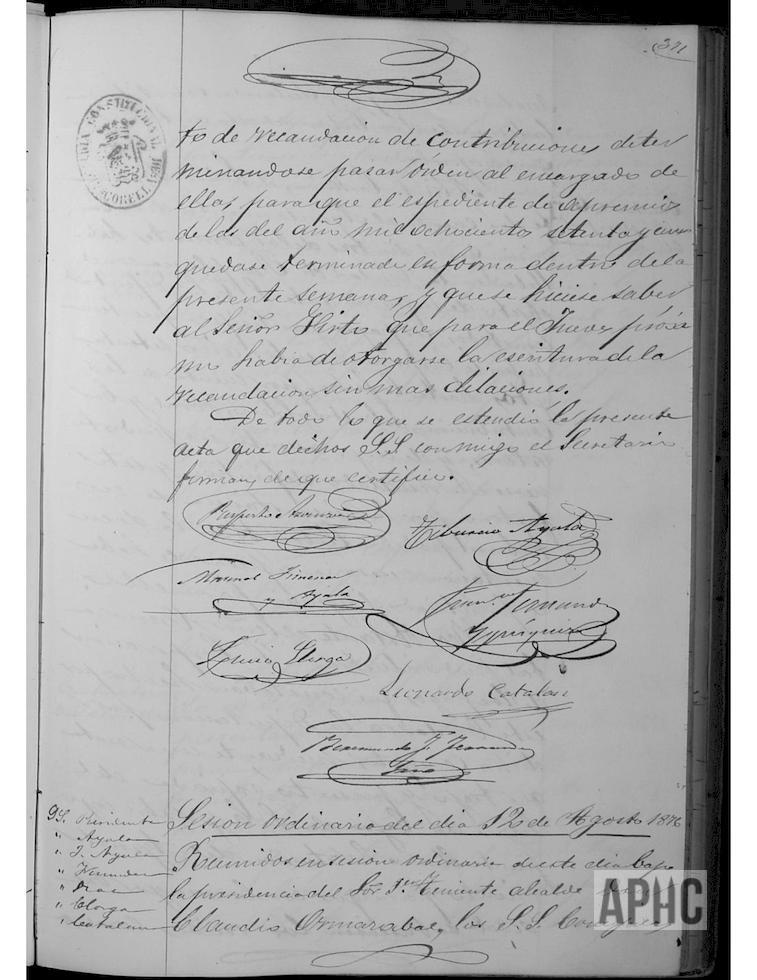 371
ALCALDIA CONSTITUCIONAL DE
to de recaudacion de contribuciones deter
minandose pasar orden al encargado de
ellas para que el espediente de apremios
de las del año mil ochocientos setenta y cinco
quedase terminado en forma dentro de la
presente semana, y que se hiciese saber
al Señor Hirto que para el Jueves próxi
mo habia de otorgarse la escritura de la
recaudacion sin mas dilaciones.
De todo lo que se estendio la presente
acta que dichos S.S. conmigo el Secretario
firman, de que certifico.
Ruperto
Tiburcio Ayala
Manuel Jimenez
y Ayala
Franco Fernandez
Llorga
Leonardo Catalan
Fernandez
Sesion ordinaria del dia 12 de Agosto 1876
SS. Presidente
" Ayala
" J. Ayala
" Fernandez
" Diaz
" Llorga
" Catalan
Reunidos en sesion ordinaria de este dia bajo
la presidencia del Sor 1er Teniente alcalde
Claudio Ormazabal, los S.S. Concejales
APHC